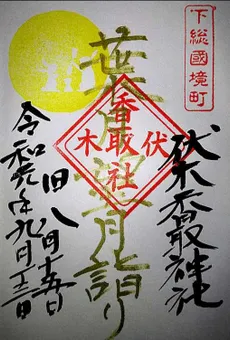 下総國境町
伏木香取神社
葉月月詣り
伏木
香取社
旧八月十五日
令和元年九月十三日